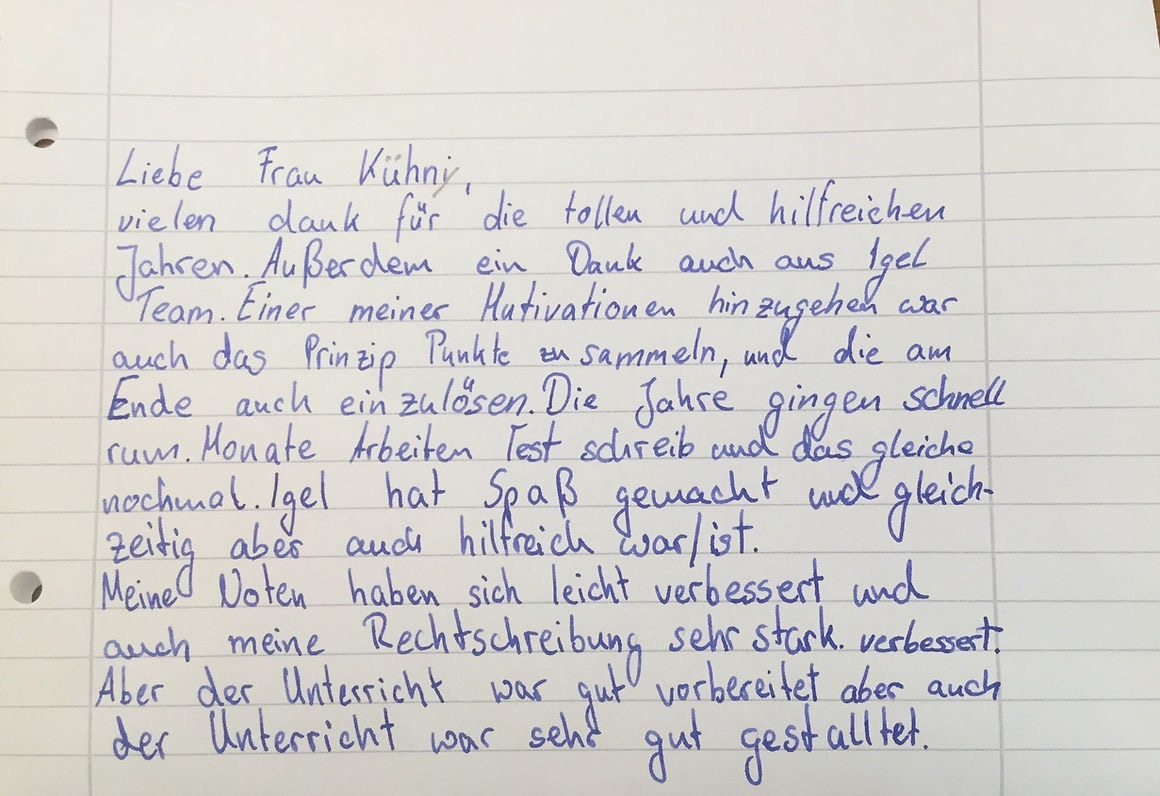 Liebe Frau Kühni,
vielen dank für die tollen und hilfreichen
Jahren. Außerdem ein Dank auch aus Igel
Team. Einer meiner Mutivationen hinzugehen war
auch das Prinzip Punkte zu sammeln, und die am
Ende auch einzulösen. Die Jahre gingen schnell
rum. Monate Arbeiten Test schreib und das gleiche
nochmal. Igel hat Spaß gemacht und gleich-
zeitig aber auch hilfreich war/ist.
Meine Noten haben sich leicht verbessert und
auch meine Rechtschreibung sehr stark. verbessert.
Aber der Unterricht war gut vorbereitet aber auch
der Unterricht war sehr gut gestalltet.